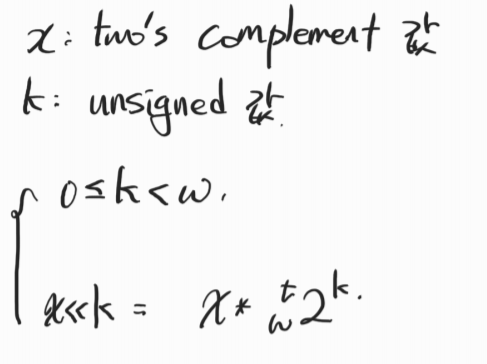 x: two's complement 값
k: unsigned 값.
0 ≤ k < w.
x<<k = x * ᵗ_w 2^k.